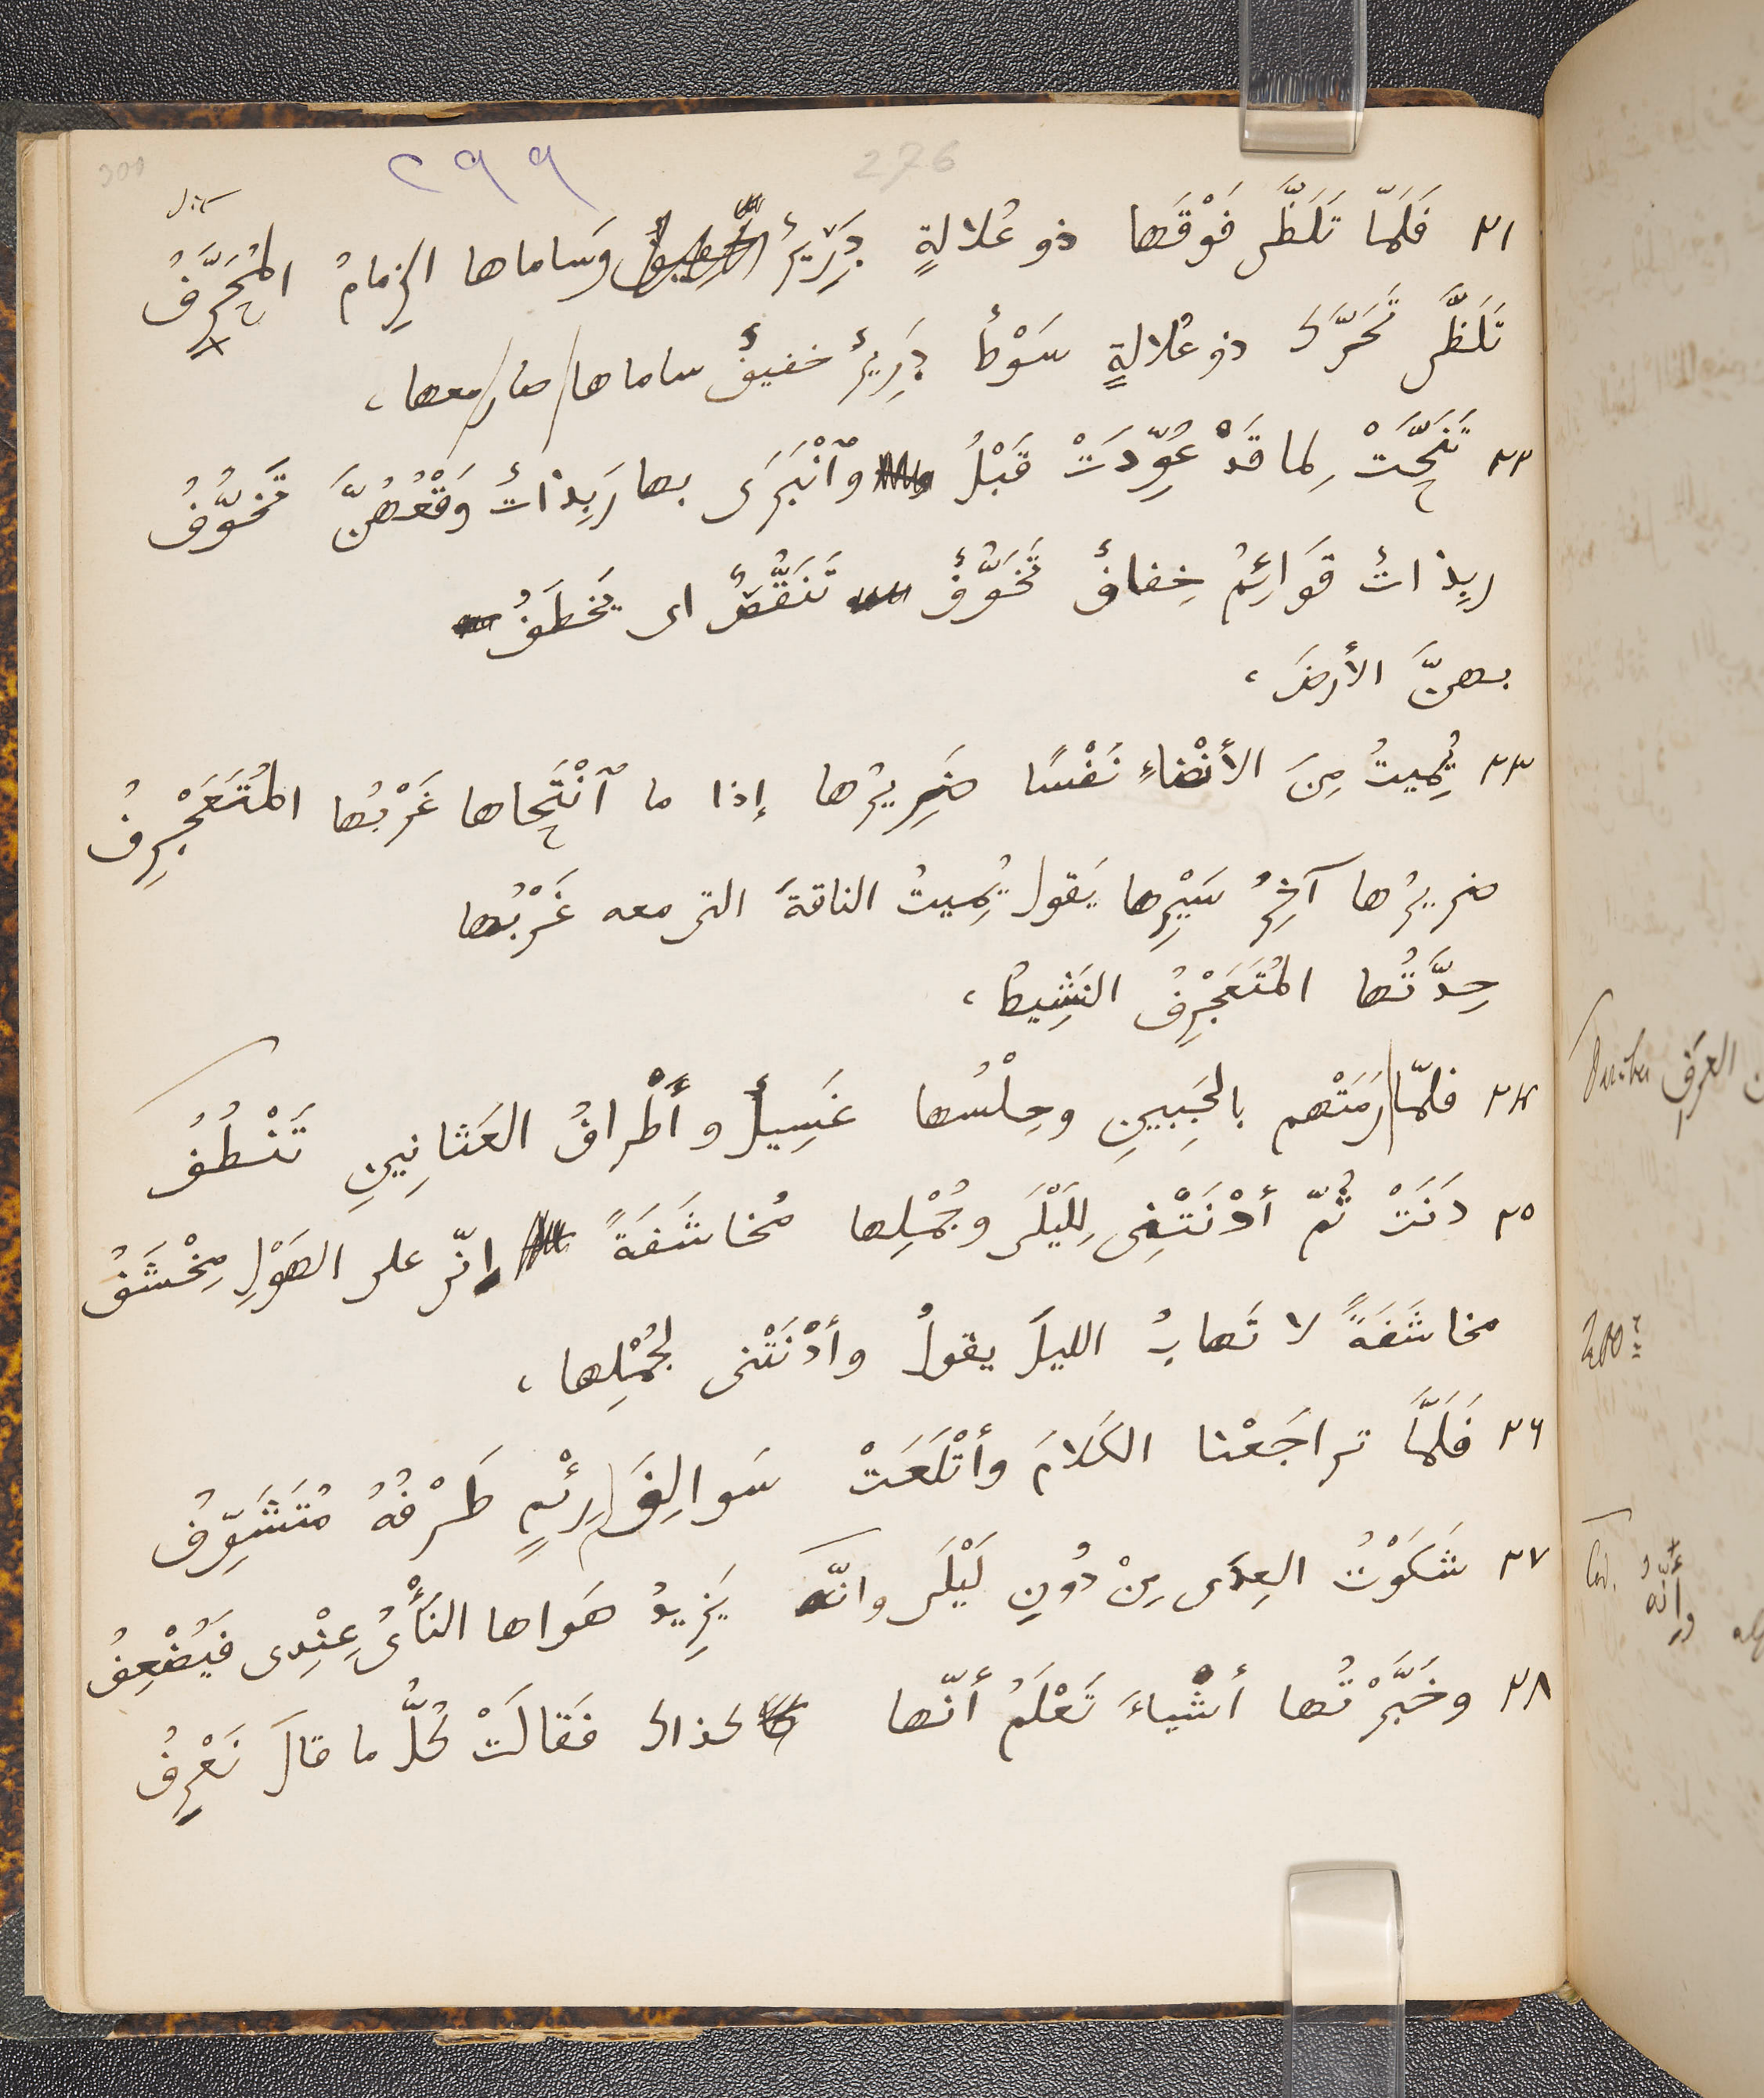 300
٢٩٩
276
٢١ فَلَمّا تَلَظَّى فَوْقَها ذو عُلالةٍ دَرِيرٌ وَساماها الزِمامُ المُحَرَّفُ
تَلَظَّى تَحَرَّكَ ذو عُلالةٍ سَوْطٌ دَرِيرٌ خفيفٌ ساماها صار معها،
٢٢ تَنَحَّتْ لِما قَدْ عُوِّدَتْ قَبْلُ وٱنْبَرَى بها رَبِذاتٌ وَقْعُهُنَّ تَخَوُّفُ
ربِذاتٌ قَوَائِمُ خِفافٌ تَخَوُّفٌ تَنَقُّصٌ اى يَخطَفُ
بهنَّ الأرضَ،
٢٣ تُمِيتُ مِنَ الأنْضاءِ نَفْسًا ضَرِيرُها إذا ما ٱنْتَحاها غَرْبُها المُتَعَجْرِفُ
ضريرُها آخِرُ سَيْرِها يَقول تُمِيتُ الناقةَ التى معه غَرْبُها
حِدَّتُها المُتَعَجْرِفُ النَشِيطُ،
٢٤ فلمّا رَمَتْهم بالجَبِينِ وحِلْسُها غَسِيلٌ وأَطْرافُ العَثانِينِ تَنْطُفُ
٢٥ دَنَتْ ثُمّ أدْنَتْنِى لِلَيْلَى وجُمْلِها مُخاشَفَةً إنّى على الهَوْلِ مِخْشَفُ
مخاشَفَةً لا تَهابُ الليلَ يقولُ وأدْنَتْنى لجُمْلِها،
٢٦ فَلَمَّا تراجَعْنا الكَلامَ وأتْلَعَتْ سَوالِفَ رِئْمٍ طَرْفُهُ مُتَشَوِّفُ
٢٧ شَكَوْتُ العِدَى مِنْ دُونِ لَيْلَى وانّه يَزِيدُ هَواها النَأْىُ عِنْدِى فَيُضْعِفُ
٢٨ وخَبَّرْتُها أشْياءَ تَعْلَمُ أنّها كذاك فَقالَتْ كُلَّ ما قالَ نَعْرِفُ
العرق
Cod. وإنّه